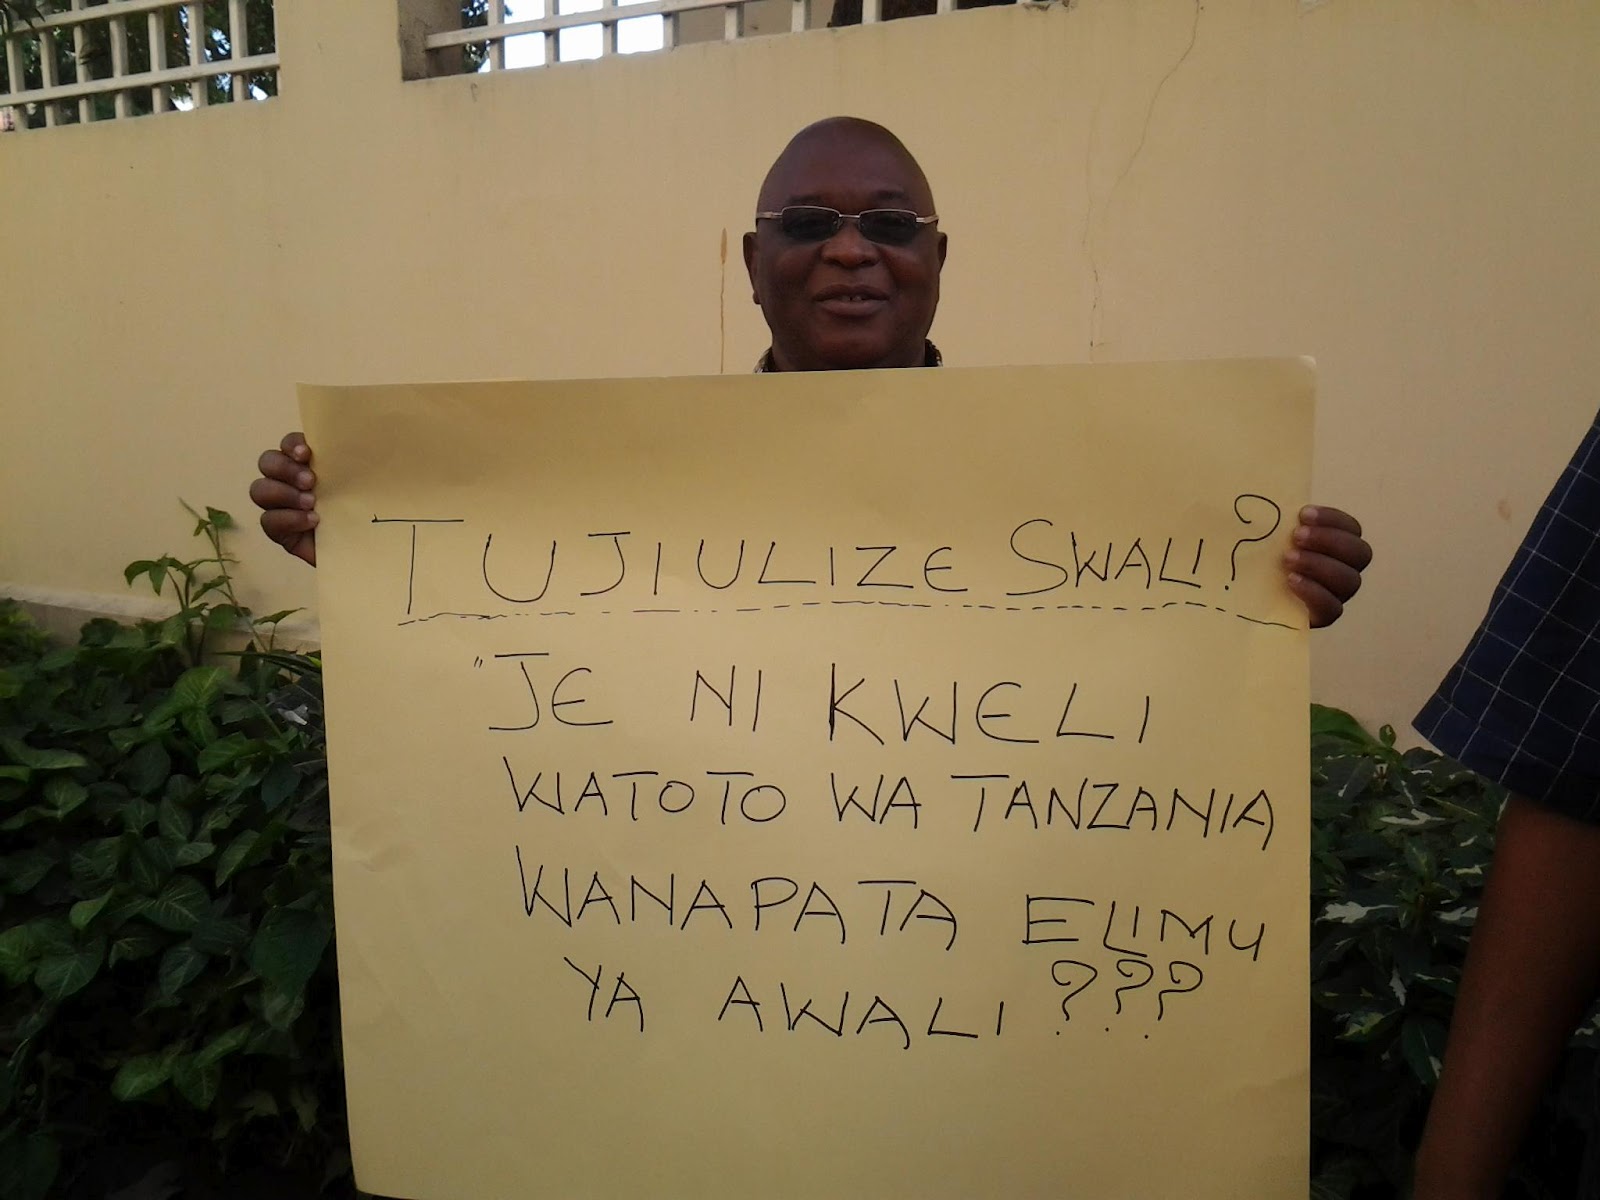 TUJIULIZE SWALI?
"JE NI KWELI
WATOTO WA TANZANIA
WANAPATA ELIMU
YA AWALI???